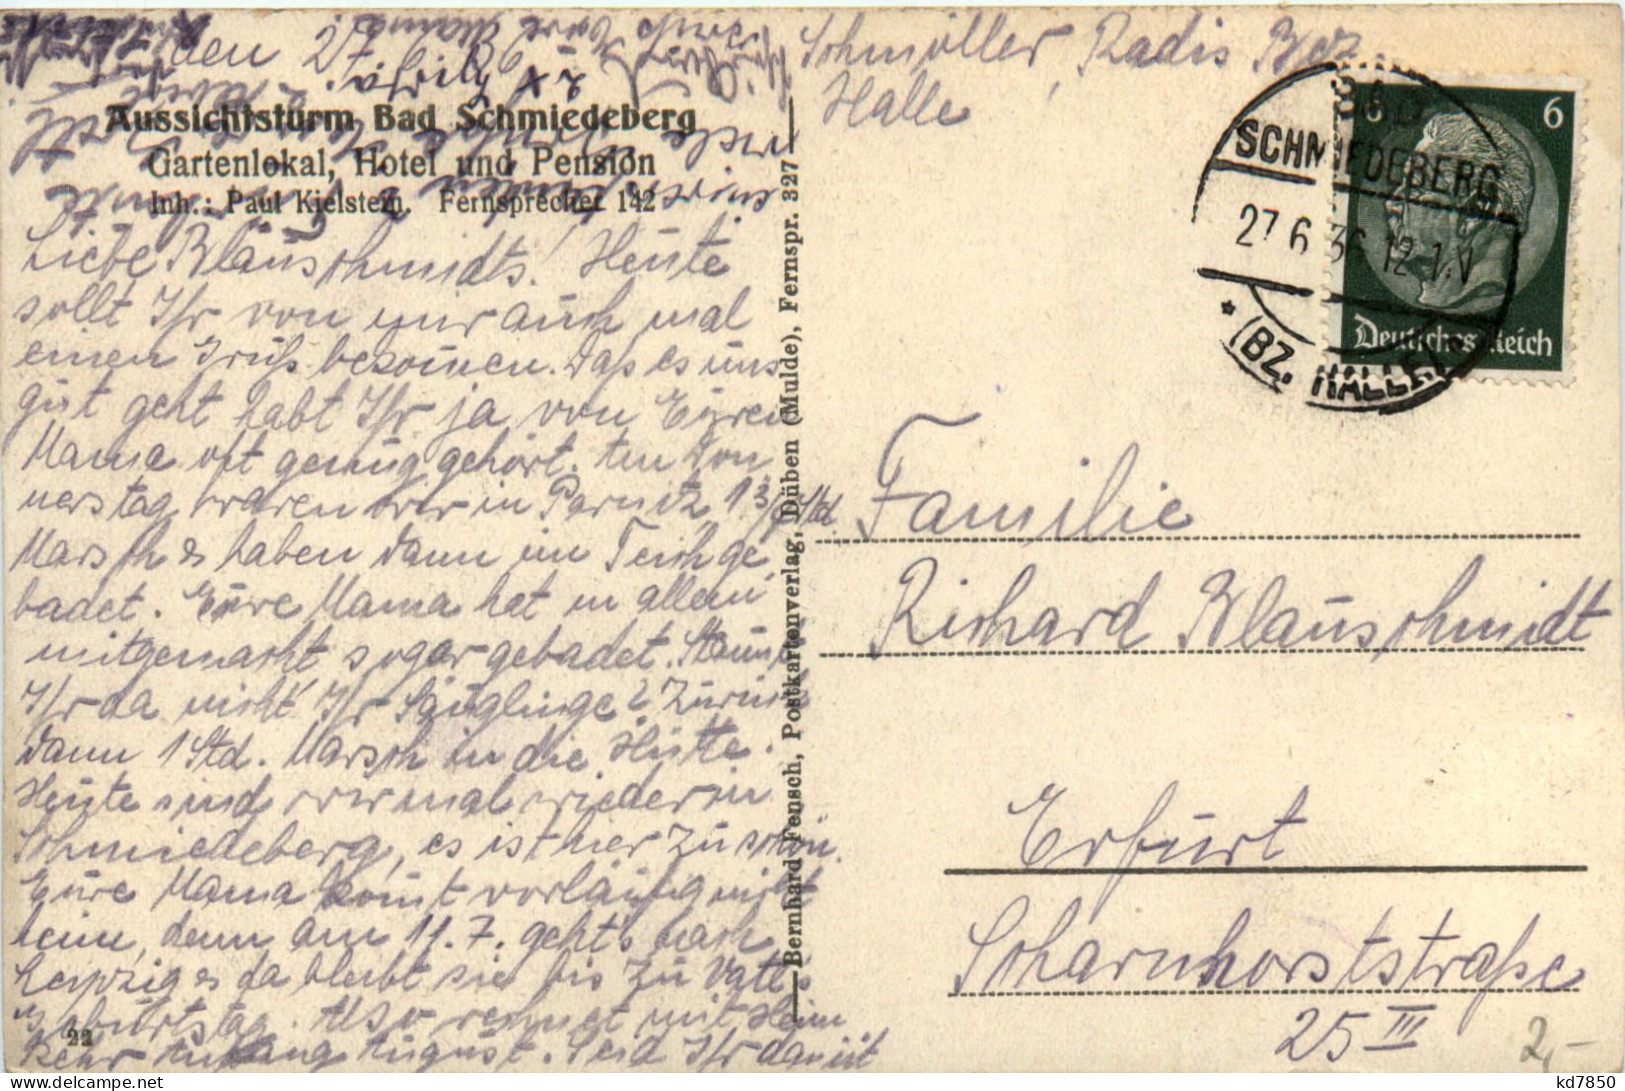 den 27.6.36
Aussichtsturm Bad Schmiedeberg
Gartenlokal, Hotel und Pension
Inh.: Paul Kielstein. Fernsprecher 142
Liebe Blauschmidts! Heute
sollt Ihr von mir auch mal
einen Gruß bekommen. Daß es uns
gut geht habt Ihr ja von Eurer
Mama oft genug gehört. Am Don
nerstag waren wir in Parnitz, 1 3/4 Std
Marsch & haben dann im Teich ge
badet. Eure Mama hat in allem
mitgemacht sogar gebadet. Staunt
Ihr da nicht Ihr Säuglinge? Zurück
dann 1 Std. Marsch in die Hütte.
Heute sind wir mal wieder in
Schmiedeberg, es ist hier zu schön.
Eure Mama kommt vorläufig nicht
heim, denn am 11.7. geht's nach
Leipzig & da bleibt sie bis zu Vatls
Geburtstag. Also rechnet mit Heim
kehr Anfang August. Seid Ihr damit
22
Bernhard Fensch, Postkartenverlag, Düben (Mulde), Fernspr. 327
Schmöller, Radis Bez.
Halle
Bad
SCHMIEDEBERG
27.6.36.12-1.V
* (BZ. HALLE) *
6
Deutsches Reich
Familie
Richard Blauschmidt
Erfurt
Scharnhorststraße
25 III
2,-
kd7850